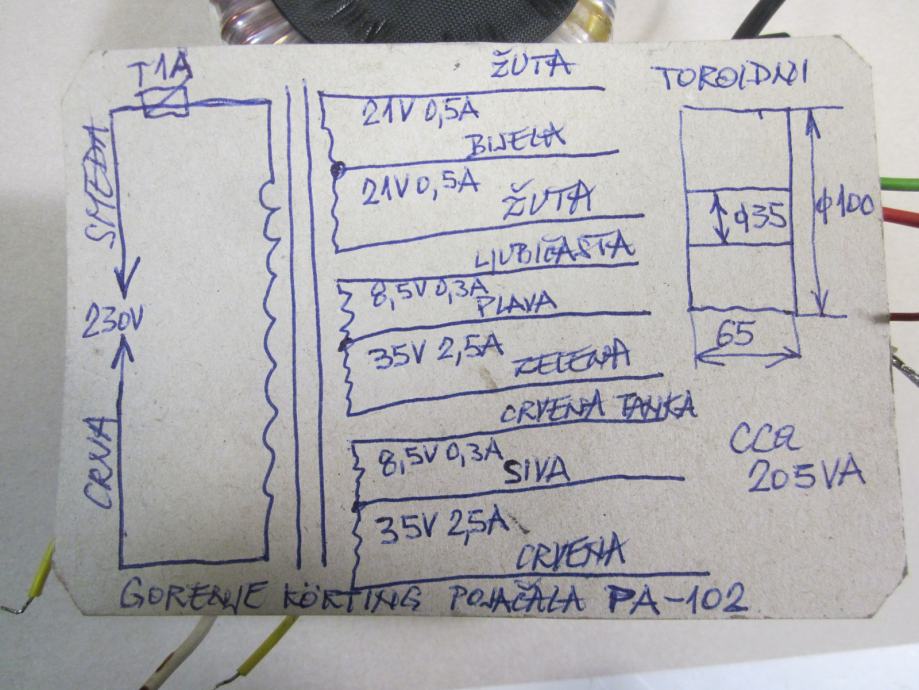 T1A
ŽUTA
TOROIDNI
21V 0,5A
BIJELA
SMEĐA
21V 0,5A
ŽUTA
ϕ35
ϕ100
LJUBIČASTA
8,5V 0,3A
PLAVA
230V
35V 2,5A
ZELENA
65
CRVENA TANKA
CRNA
8,5V 0,3A
SIVA
CCA
205VA
35V 2,5A
CRVENA
GORENJE KÖRTING POJAČALA PA-102